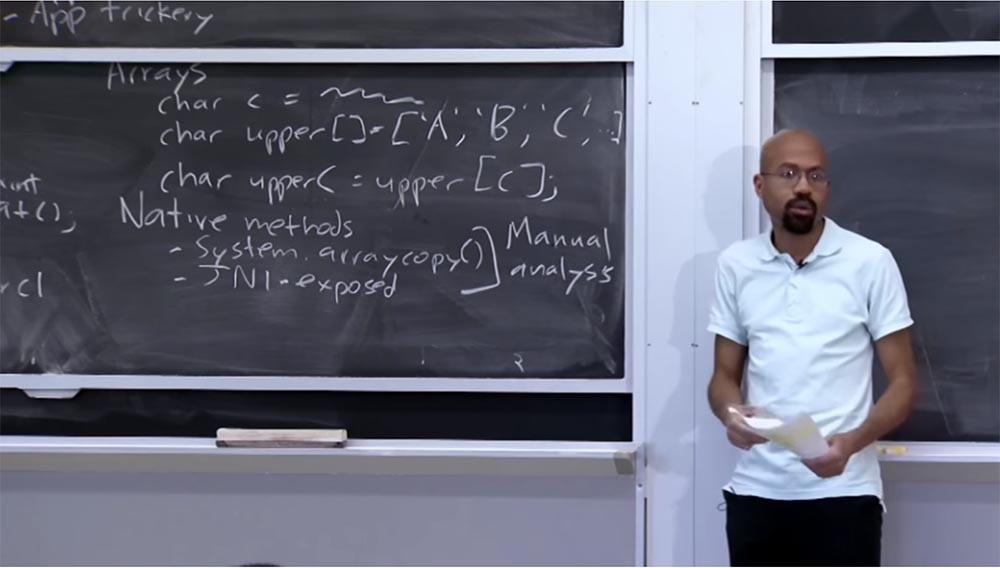 - App trickery
Arrays
char c =
char upper[]=['A', 'B', 'C', ..]
char upperC = upper [c];
Native methods
- System.arraycopy()
- JNI-exposed
Manual
analysis